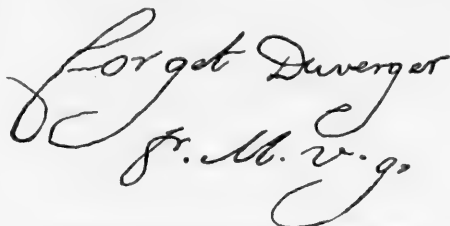 forget Duverger
gr. M. v. g.